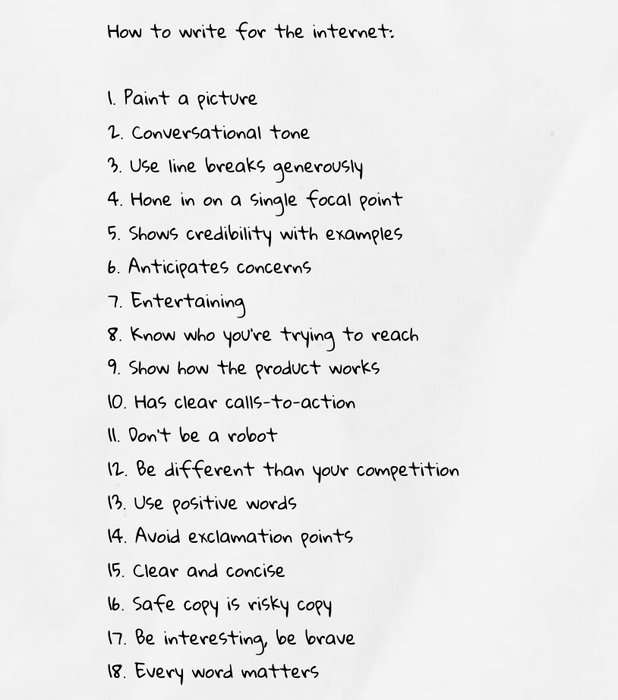 How to write for the internet:
1. Paint a picture
2. Conversational tone
3. Use line breaks generously
4. Hone in on a single focal point
5. Shows credibility with examples
6. Anticipates concerns
7. Entertaining
8. Know who you're trying to reach
9. Show how the product works
10. Has clear calls-to-action
11. Don't be a robot
12. Be different than your competition
13. Use positive words
14. Avoid exclamation points
15. Clear and concise
16. Safe copy is risky copy
17. Be interesting, be brave
18. Every word matters